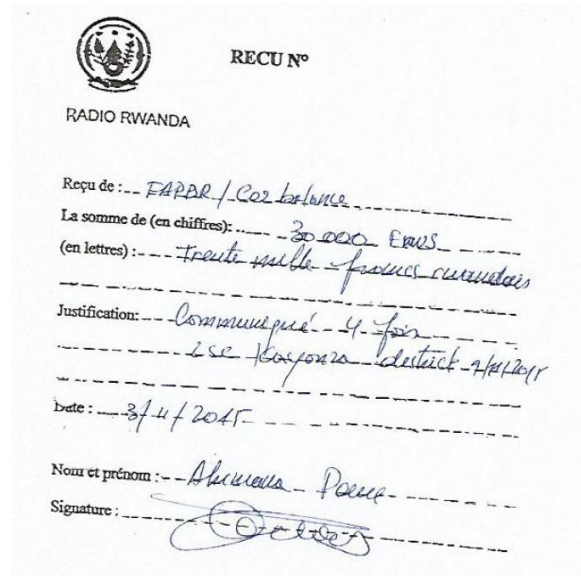 RECU N°
RADIO RWANDA
Reçu de : FAPDR / CO2 balance
La somme de (en chiffres): 30.000 Frws
(en lettres) : Trente mille francs rwandais
Justification: Communiqué 4 fois
LSC Kayonza district
Date : 3/11/2015
Nom et prénom :
Signature :